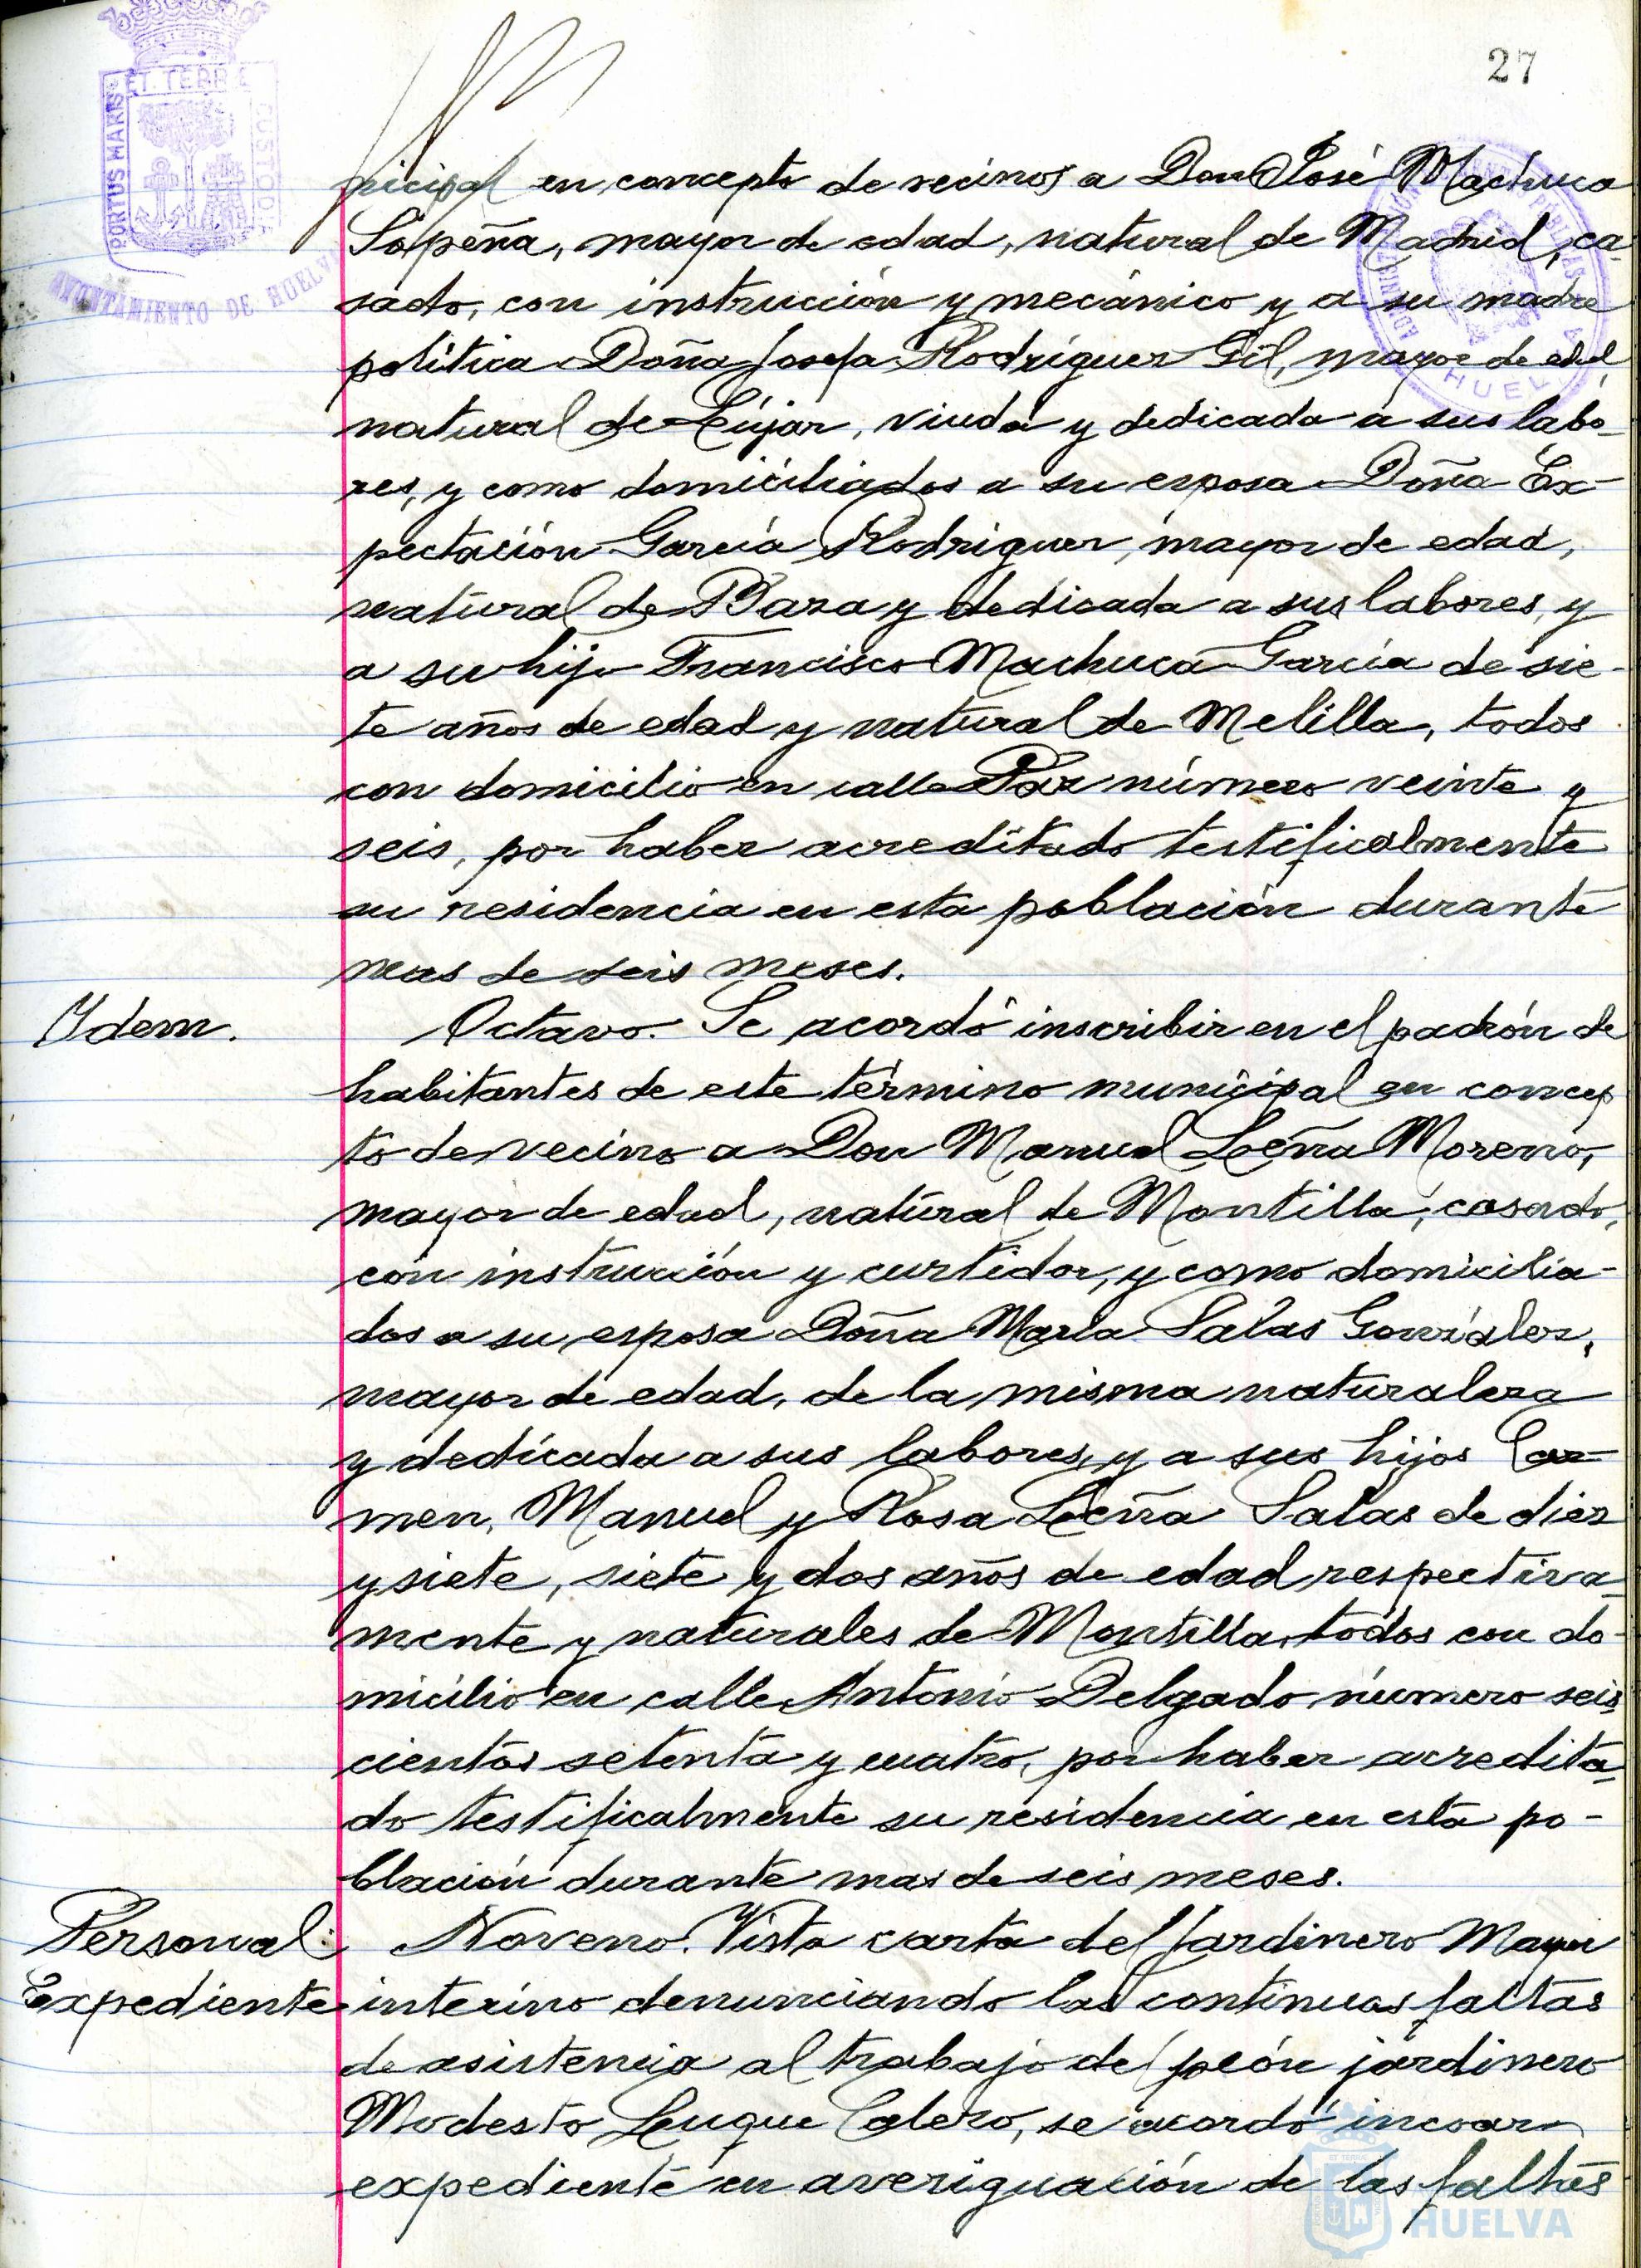 27
PORTUS MARIS ET TERRE CUSTODIA
AYUNTAMIENTO DE HUELVA
nicipal en concepto de vecinos a Don José Machuca
Sapeña, mayor de edad, natural de Madrid, ca-
sado, con instrucción y mecánico y a su madre
politica Doña Josefa Rodriguez Gil, mayor de edad,
natural de Lújar, viuda y dedicada a sus labo-
res, y como domiciliados a su esposa Doña Ex-
pectación García Rodriguez, mayor de edad,
natural de Baza y dedicada a sus labores, y
a su hijo Francisco Machuca García de sie-
te años de edad y natural de Melilla, todos
con domicilio en calle Paz número veinte y
seis, por haber acreditado testificalmente
su residencia en esta población durante
mas de seis meses.
Ydem.
Octavo. Se acordó inscribir en el padrón de
habitantes de este término municipal en concep
to de vecino a Don Manuel Leña Moreno,
mayor de edad, natural de Montilla, casado,
con instrucción y curtidor, y como domicilia-
dos a su esposa Doña María Salas González,
mayor de edad, de la misma naturaleza
y dedicada a sus labores, y a sus hijos Car-
men, Manuel y Rosa Leña Salas de diez
y siete, siete y dos años de edad respectiva-
mente y naturales de Montilla, todos con do-
micilio en calle Antonio Delgado número seis
cientos setenta y cuatro, por haber acredita-
do testificalmente su residencia en esta po-
blación durante mas de seis meses.
Personal:
Expediente
Noveno. Vista carta del Jardinero Mayor
interino denunciando las continuas faltas
de asistencia al trabajo del peón jardinero
Modesto Luque Calero, se acordó incoar
expediente en averiguación de las faltas
HUELVA